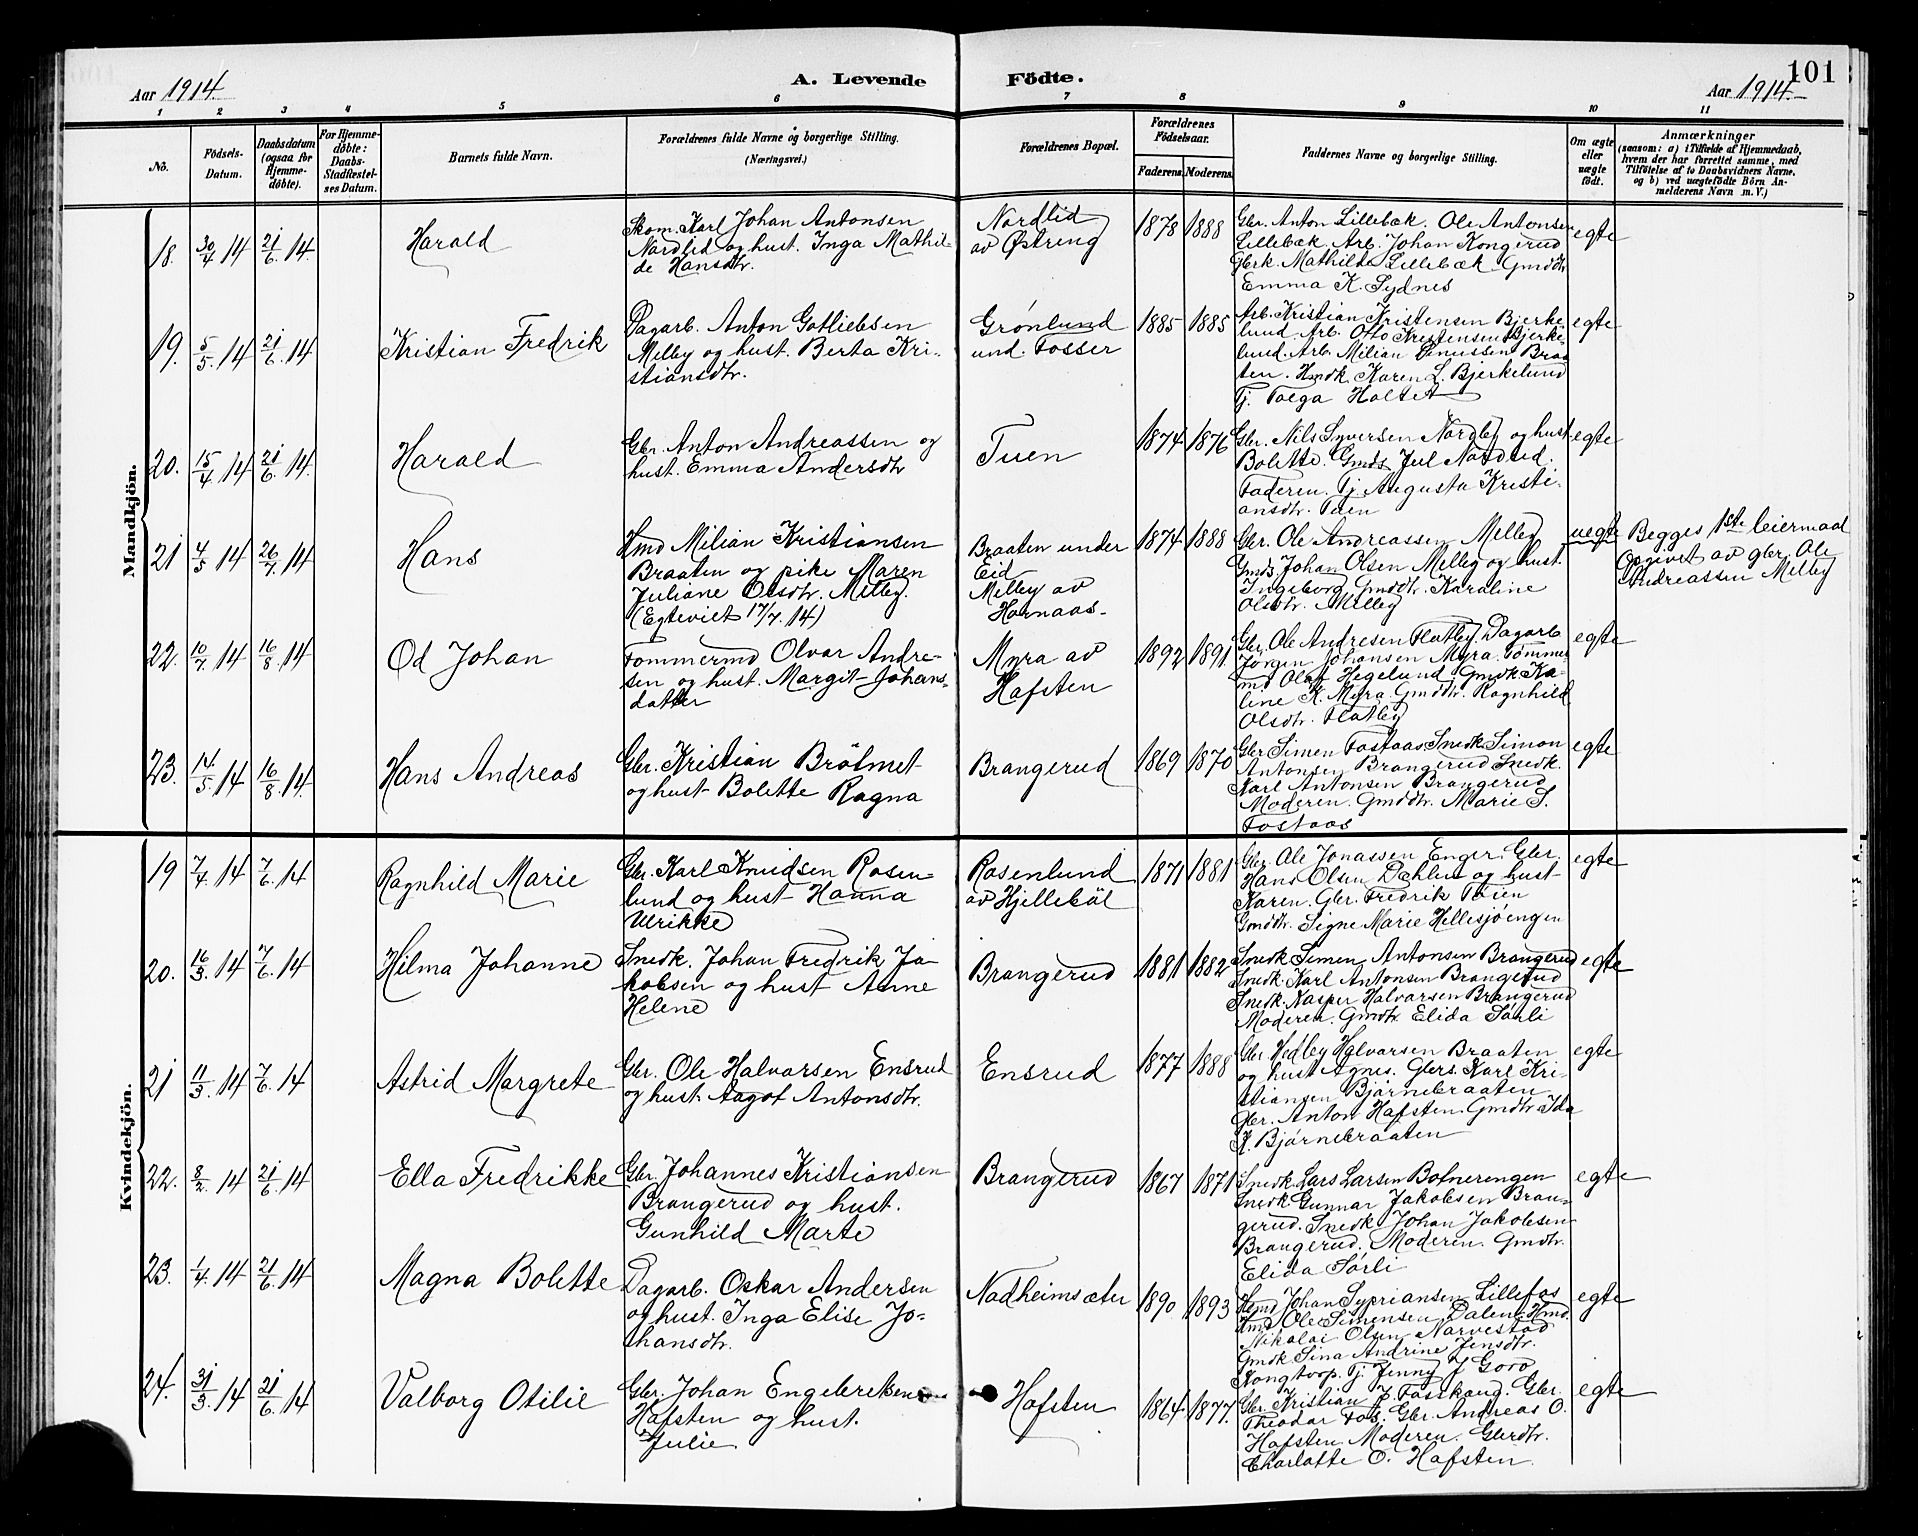 101
Aar 1914.
A. Levende
Födte.
Aar 1914.
1 2 3 4 5 6 7 8 9 10 11
No.
Födsels-
Datum.
Daabsdatum
(ogsaa for
Hjemme-
döbte).
For Hjemme-
döbte:
Daabs-
Stadfæstel-
ses Datum.
Barnets fulde Navn.
Forældrenes fulde Navne og borgerlige Stilling.
(Næringsvei.)
Forældrenes Bopæl.
Forældrenes
Födselsaar.
Faderens.
Moderens.
Faddernes Navne og borgerlige Stilling.
Om ægte
eller
uægte
födt.
Anmærkninger
(saasom: a) i Tilfælde af Hjemmedaab,
hvem der har forrettet samme, med
Tilföielse af to Daabsvidners Navne,
og b) ved uægtefödte Börn An-
melderens Navn m. V.)
Mandkjön.
18. 30/4 14 21/6 14.
Harald
Skom. Karl Johan Antonsen
Nordlid og hust. Inga Mathil-
de Hansdtr.
Nordlid
av Østreng
1878 1888
Gbr. Anton Lillebæk. Ole Antonsen
Lillebæk. Arb. Johan Kongerud
Gbrk. Mathilde Lillebæk Gmdtr.
Emma K. Sydnes
egte
19. 5/5 14 21/6 14
Kristian Fredrik
Dagarb. Anton Gotliebsen
Melby og hust. Berta Kri-
stiansdtr.
Grønlund
und. Fosser
1885 1885
Arb. Kristian Kristensen Bjerke-
lund. Arb. Otto Kristensen Bjerke-
lund. Arb. Milian Linussen Braa-
ten. Hmdk. Karen L. Bjerkelund
Tj. Tolga Holset
egte
20. 15/4 14 21/6 14.
Harald
Gbr. Anton Andreassen og
hust. Emma Andersdtr
Tuen
1874 1876
Gbr. Nils Syversen Nordby og hust.
Bolette. Gmds Jul Nordlid.
Faderen. Tj. Augusta Kristi-
ansdtr. Tuen
egte
21 4/5 14 26/7 14
Hans
Hmd Milian Kristiansen
Braaten og pike Maren
Juliane Olsdtr. Melby.
(Egteviet 17/7. 14)
Braaten under
Eid
Melby av
Hornaas
1874 1888
Gbr. Ole Andreassen Melby
Gmds. Johan Olsen Melby og hust.
Ingeborg Gmddtr. Karoline
Olsdtr. Melby
uegte
Begges 1ste leiermaal
Opgivet av gbr. Ole
Andreassen Melby
22. 10/7 14 16/8 14
Od Johan
Tommermd Olvar Andre-
sen og hust. Margit Johans-
datter
Myra av
Hafsten
1892 1891.
Gbr. Ole Andresen Flatby. Dagarb
Jørgen Johansen Myra. Tømmer-
md Olaf Hegelund Gmdk Ka-
line K. Myra. Gmddtr. Ragnhild
Olsdtr. Flatby
egte
23. 14/5 14 16/8 14.
Hans Andreas
Gbr. Kristian Bråtmet
og hust Bolette Ragna
Brangerud
1869 1870
Gbr Simen Tostaas, Snedk Simon
Antonsen Brangerud Snedk.
Karl Antonsen Brangerud
Moderen. Gmddtr. Marie S.
Tostaas
egte
Kvindekjön.
19 7/4 14 7/6 14
Ragnhild Marie
Gbr. Karl Knudsen Rosen-
lund og hust Hanna
Ulrikke
Rosenlund
av Hjellebøl
1871 1881
Gbr. Ole Jonassen Enger. Gbr.
Hans Olsen Dæhlin og hust
Karen. Gbr. Fredrik Tøien
Gmddtr. Signe Marie Hellesjøengen
egte
20. 16/3 14 7/6 14
Hilma Johanne
Snedk. Johan Fredrik Ja-
kobsen og hust Anne
Helene
Brangerud
1881 1882
Snedk Simen Antonsen Brangerud
Snedk. Karl Antonsen Brangerud
Snedk. Kasper Halvorsen Brangerud
Moderen. Gmdtr. Elida Sørli
egte
21 11/3 14 7/6 14
Astrid Margrete
Gbr. Ole Halvorsen Ensrud
og hust. Aagot Antonsdtr.
Ensrud
1877 1888
Gbr Hedley Halvorsen Braaten
og hust Agnes. Gbrs. Karl Kri-
stiansen Bjørnebraaten
Gbr. Anton Hafsten. Gmdtr Ida
K. Bjørnebraaten
egte
22. 8/2 14 21/6 14
Ella Fredrikke
Gbr. Johannes Kristiansen
Brangerud og hust.
Gunhild Marte
Brangerud
1867 1871
Snedk. Lars Larsen Botnerengen
Snedk Gunnar Jakobsen Bran-
gerud. Snedk Johan Jakobsen
Brangerud. Moderen. Gmdtr.
Elida Sørli
egte
23. 1/4 14 21/6 14
Magna Bolette
Dagarb. Oskar Andersen
og hust. Inga Elise Jo-
hansdtr.
Nadheimsæter
1890 1893
Hmd Johan Sypriansen Lillefos
Hmd Ole Simensen Dalen Hmd
Nikolai Olsen Narvestad
Gmdk Sina Andrine Jensdtr.
Kongtorp. Tj. Jenny J Goro
egte
24. 31/3 14 21/6 14
Valborg Otilie
Gbr. Johan Engebretsen
Hafsten og hust.
Julie
Hafsten
1864 1877.
Gbr. Kristian J. Fosshaug. Gbr.
Theodor Fos. Gbr. Andreas O.
Hafsten. Moderen. Gbrdtr.
Charlotte O. Hafsten.
egte